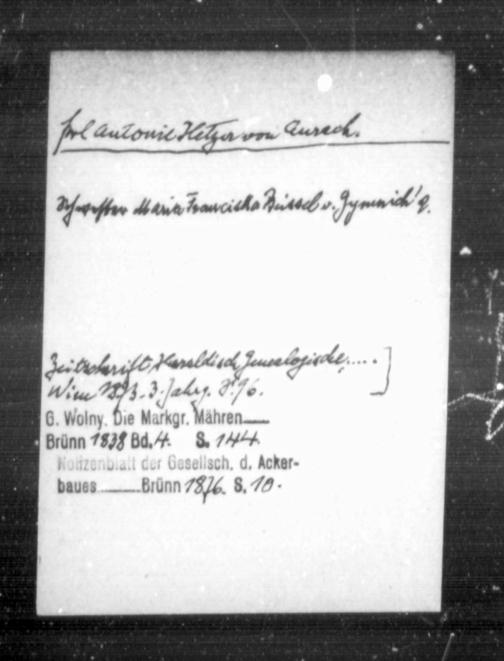 Antonie Hetzer von Aurach.
Schwester Maria Franciska Büssel v. Gymnich
Zeitschrift, Heraldisch Genealogische, ....
Wien 1873. 3. Jahrg. S. 96.
G. Wolny. Die Markgr. Mähren
Brünn 1838 Bd. 4. S. 144.
Notizenblatt der Gesellsch. d. Acker-
baues Brünn 1876. S. 10.